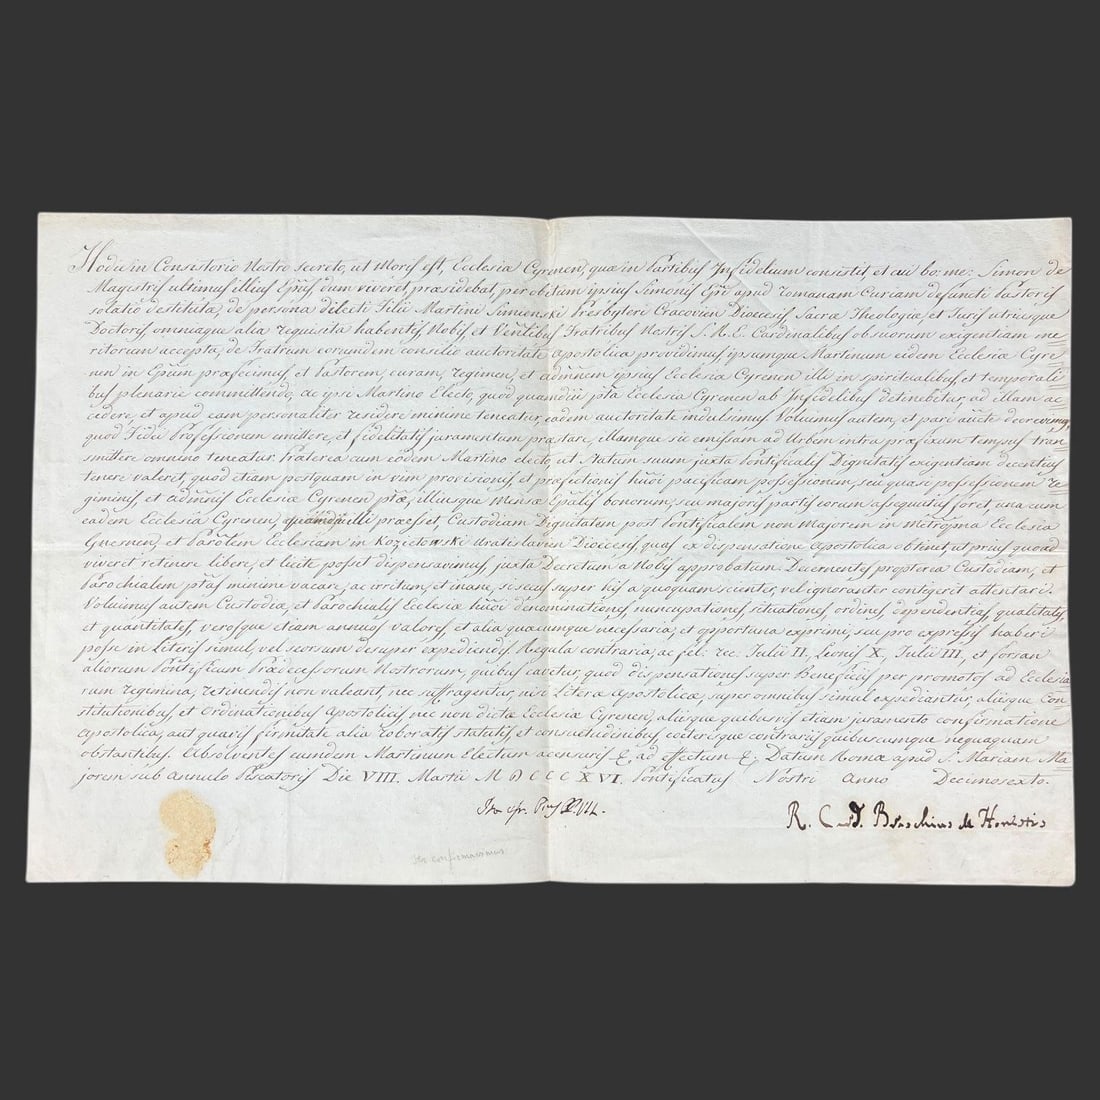 Hodie in Consistorio Nostro secreto, ut moris est, Ecclesia Cyrenen, quæ in Partibus Infidelium consistit, et cui bo: me: Simon de
Magistris ultimus illius Epus, dum viveret, præsidebat, per obitum ipsius Simonis Epi apud romanam Curiam defuncti Pastoris
solatio destituta, de persona dilecti Filii Martini Simienski Presbyteri Cracovien Diocesis Sacræ Theologiæ, et Juris utriusque
Doctoris omniaque alia requisita habentis Nobis, et Ventibus Fratribus Nostris S. R. E. Cardinalibus ob suorum exigentiam me
ritorum accepta, de Fratrum eorundem consilio auctoritate Apostolica providimus, ipsumque Martinum eidem Ecclesiæ Cyre
nen in Epum præfecimus, et Pastorem, curam, regimen, et admnem ipsius Ecclesiæ Cyrenen illi in spiritualibus, et temporali
bus plenarie committendo, ac ipse Martino Electo, quod quamdiu pta Ecclesia Cyrenen ab Infidelibus detinebitur, ad illam ac
cedere, et apud eam personaliter residere minime teneatur, eadem auctoritate indulsimus Voluimus autem, et pari aucte decrevimus,
quod Fidei Professionem emittere, et fidelitatis juramentum præstare, illamque sic emissam ad Urbem intra præfixum tempus tran
smittere omnino teneatur. Præterea cum eodem Martino electo, ut Statum suum juxta Pontificalis Dignitatis exigentiam decentius
tenere valeret, quod etiam postquam in vim provisionis, et præfectionis huoi pacificam possessionem, seu quasi possessionem re
giminis, et admnis Ecclesiæ Cyrenen ptæ, illiusque Mensæ Epalis bonorum, seu majoris partis eorum assequutus foret, una cum
eadem Ecclesia Cyrenen, quamdiu illi præesset, Custodiam Dignitatem post Pontificalem non Majorem in Metropna Ecclesia
Gnesnen, et Parolem Ecclesiam in Kozielowski Uratislavien Dioecesis, quas ex dispensatione Apostolica obtinet, ut prius quoad
viveret retinere libere, et licite posset dispensavimus, juxta Decretum a Nobis approbatum. Decernentes propterea Custodiam, et
Parochialem ptas minime vacare, ac irritum, et inane, si secus super his a quoquam scienter, vel ignoranter contigerit attentari.
Volumus autem Custodiæ, et Parochialis Ecclesiæ huoi denominationes, nuncupationes, situationes, ordines, dependentias, qualitates,
et quantitates, verosque etiam annuos valores, et alia quæcumque necessaria, et opportuna exprimi, seu pro expressis haberi
posse in literis simul, vel seorsum desuper expediendis Regula contraria, ac fel: rec: Julii II, Leonis X, Julii III, et forsan
aliorum Pontificum Prædecessorum Nostrorum, quibus cavetur, quod dispensationes super Beneficiis per promotos ad Ecclesia
rum regimina, retinendis non valeant, nec suffragentur, nisi literæ Apostolicæ, super omnibus simul expediantur, aliisque Con
stitutionibus, et Ordinationibus Apostolicis, nec non dictæ Ecclesiæ Cyrenen, aliisque quibusvis etiam juramento confirmatione
Apostolica, aut quavis firmitate alia roboratis statutis, et consuetudinibus, ceterisque contrariis quibuscumque nequaquam
obstantibus. Absolventes eundem Martinum Electum a censuris &, ad effectum &, Datum Romæ apud S. Mariam Ma
jorem sub Annulo Piscatoris Die VIII. Martii MDCCCXVI. Pontificatus Nostri Anno Decimosexto.
R. Card. Braschius de Honestis
Ita confirmamus